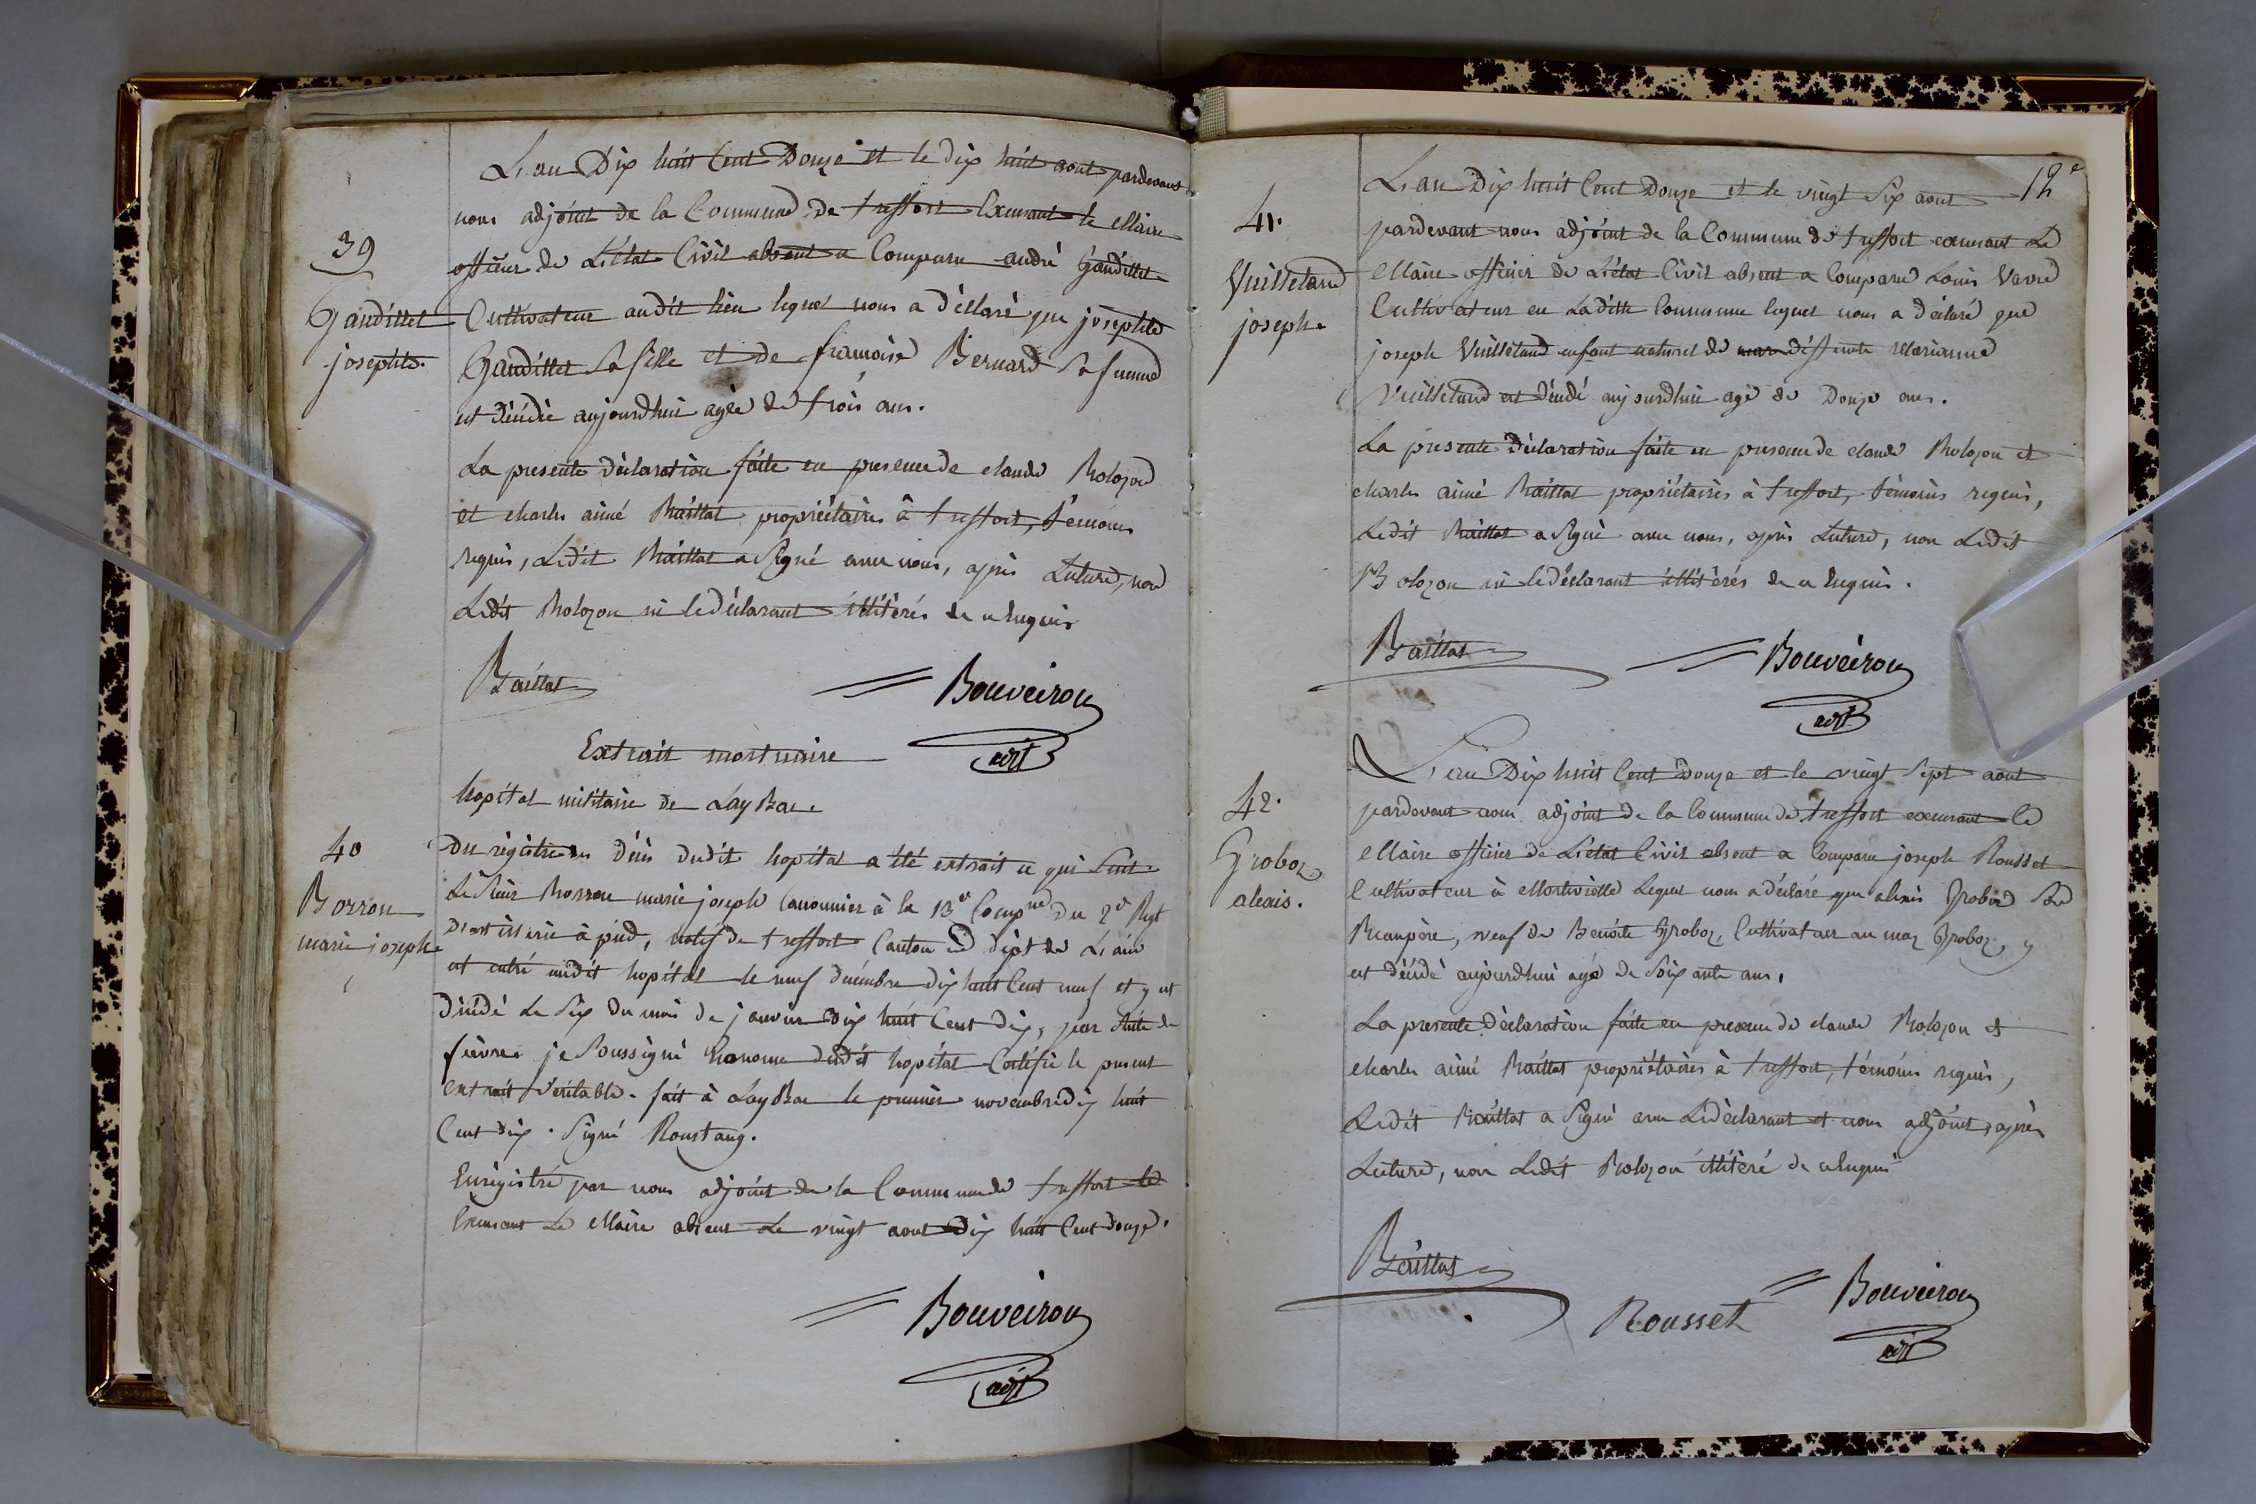 L'an Dix huit Cent Douze et le dix huit aout pardevant
nous adjoint de la Commune de treffort Exerçant le Maire
officier de L'état Civil absent a Comparu andré Gandillet
39
Gandillet
josephte.
Cultivateur audit lieu lequel nous a déclaré que josephte
Gandillet Sa fille et de francoise Bernard Sa femme
est décédée aujourdhui agée de trois ans.
La presente déclaration faite en presence de claude Bolozon
et charles aimé Baillat propriétaires à treffort, témoins
requis, Ledit Baillat a Signé avec nous, après Lecture, non
Ledit Bolozon ni le déclarant illitérés de ce Enquis
Baillat
Bouveiron
adjt
Extrait mortuaire
hopital militaire de LayBac.
40
Borron
marie joseph
Du régistre des décès dudit hopital a été extrait ce qui Suit
Le Sieur Borron marie joseph Canonnier à la 13e Compnie du 2e Regt
D'artillerie à pied, natif de treffort Canton id dépt de L'ain
est entré audit hopital le neuf décembre dix huit Cent neuf et y est
décédé Le Six du mois de janvier dix huit Cent dix, par Suite de
fièvre. je Soussigné Econome dudit hopital Certifie le present
extrait véritable. fait à LayBac le premier novembre dix huit
Cent dix. Signé Roustang.
Enrégistré par nous adjoint de la Commune de treffort le
Exerçant Le Maire absent Le vingt aout dix huit Cent douze.
Bouveiron
adjt
12e
L'an Dix huit Cent Douze et le vingt Six aout
41.
Vuilletand
joseph.
pardevant nous adjoint de la Commune de treffort exerçant Le
Maire officier de L'état Civil absent a Comparu Louis Vavre
Cultivateur en Laditte Commune lequel nous a déclaré que
joseph Vuilletand enfant naturel de deffunte Marianne
Vuilletand est décédé aujourdhui agé de Douze ans.
La présente déclaration faite en presence de claude Bolozon et
charles aimé Baillat propriétaires à treffort, témoins requis,
Ledit Baillat a Signé avec nous, après Lecture, non Ledit
Bolozon ni le déclarant illitérés de ce Enquis.
Baillat
Bouveiron
adjt
42.
Groboz
alexis.
L'an Dix huit Cent Douze et le vingt Sept aout
pardevant nous adjoint de la Commune de treffort exerçant le
Maire officier de L'état Civil absent a Comparu joseph Rousset
Cultivateur à Montvieille Lequel nous a déclaré que alexis Groboz Son
Beaupère, veuf de Benoite Groboz, Cultivateur au maz Groboz, y
est décédé aujourdhui agé de Soixante ans,
La presente déclaration faite en presence de claude Bolozon et
charles aimé Baillat propriétaires à treffort, témoins requis,
Ledit Baillat a Signé avec Le déclarant et nous adjoint, après
Lecture, non Ledit Bolozon illitéré de ce Enquis
Baillat
Rousset
Bouveiron
adjt